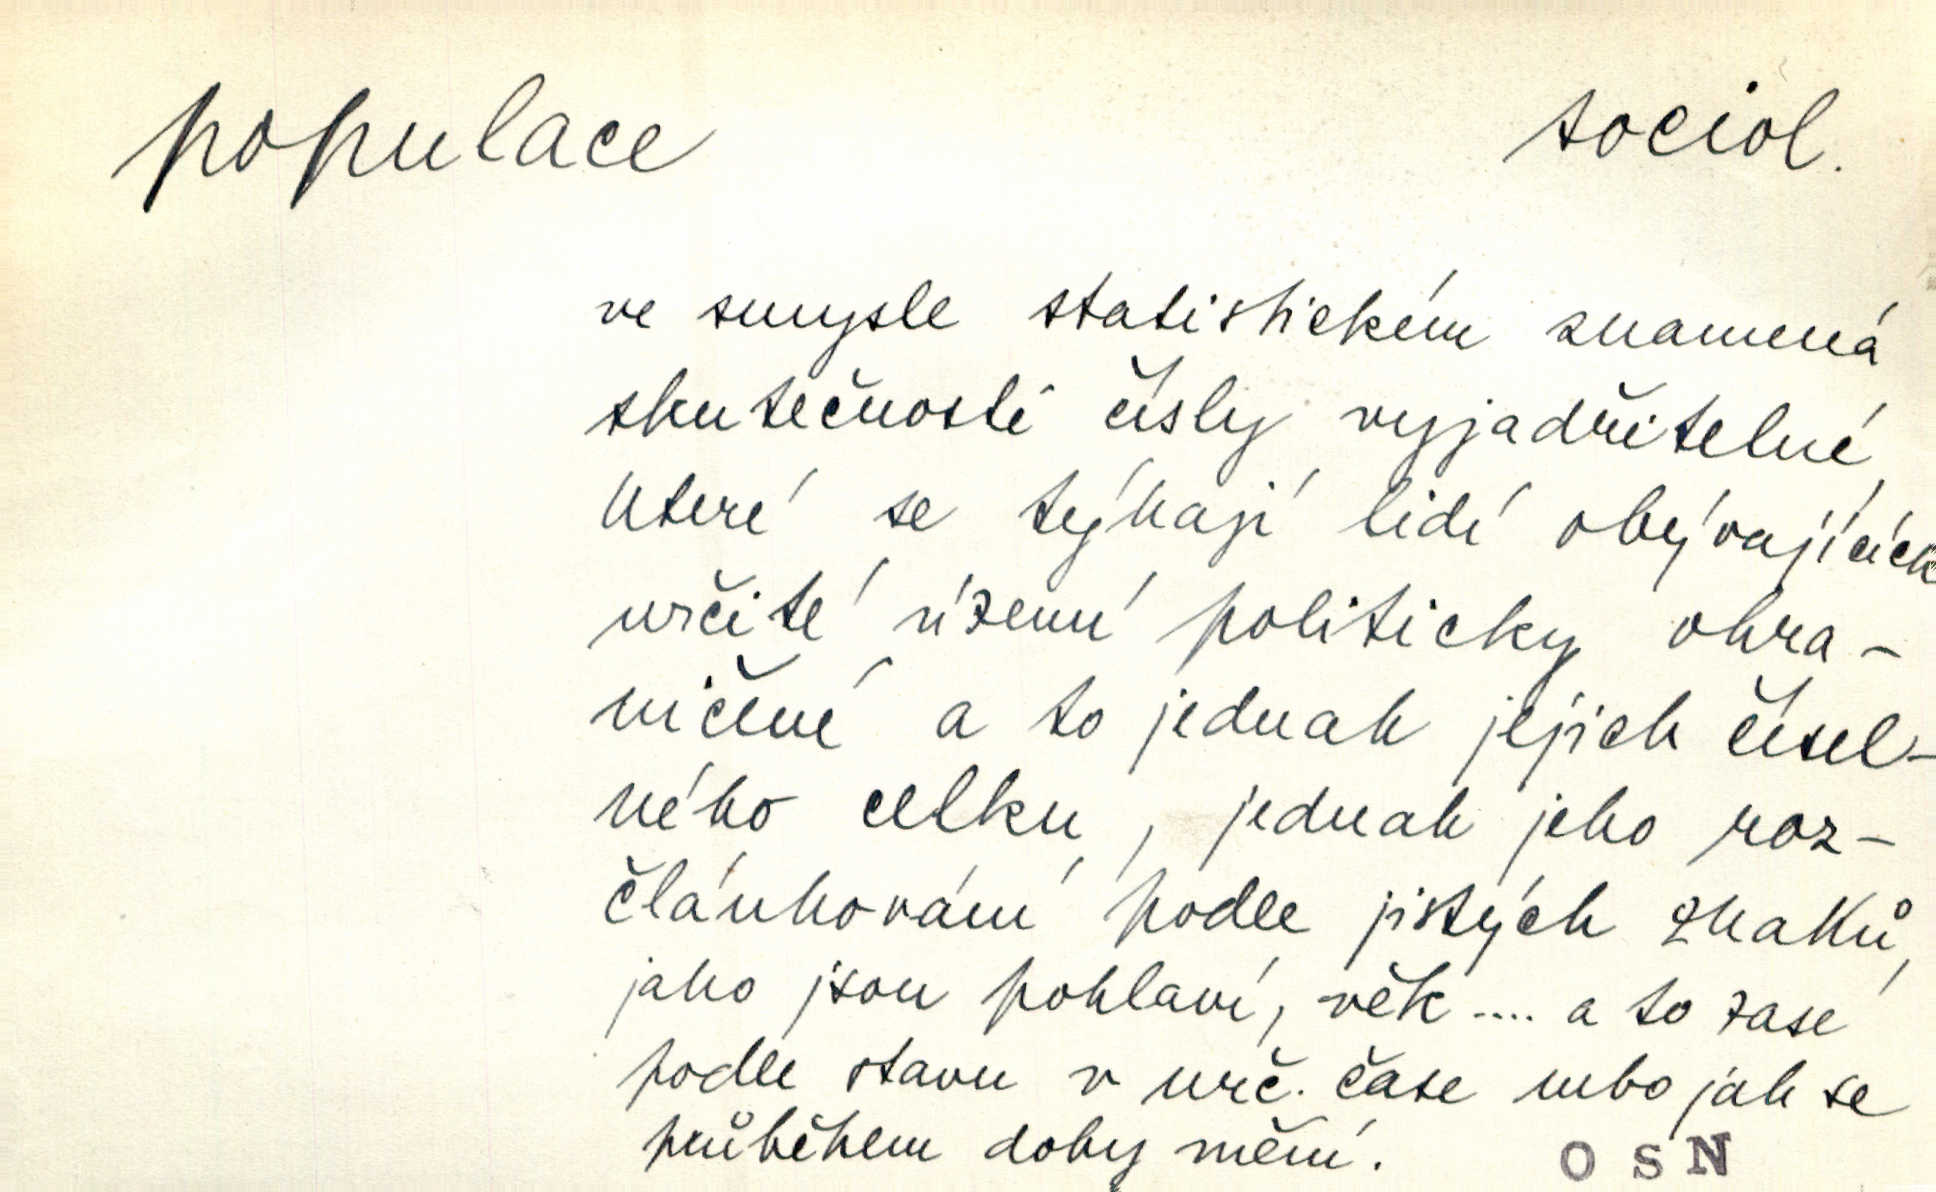 populace sociol.
ve smysle statistickém znamená
skutečnosti čísly vyjadřitelné,
které se týkají lidí obývajících
určité území politicky ohra-
ničené a to jednak jejich čísel-
ného celku, jednak jeho roz-
článkování podle jistých znaků,
jako jsou pohlaví, věk .... a to zase
podle stavu v urč. čase nebo jak se
průběhem doby mění.
OSN